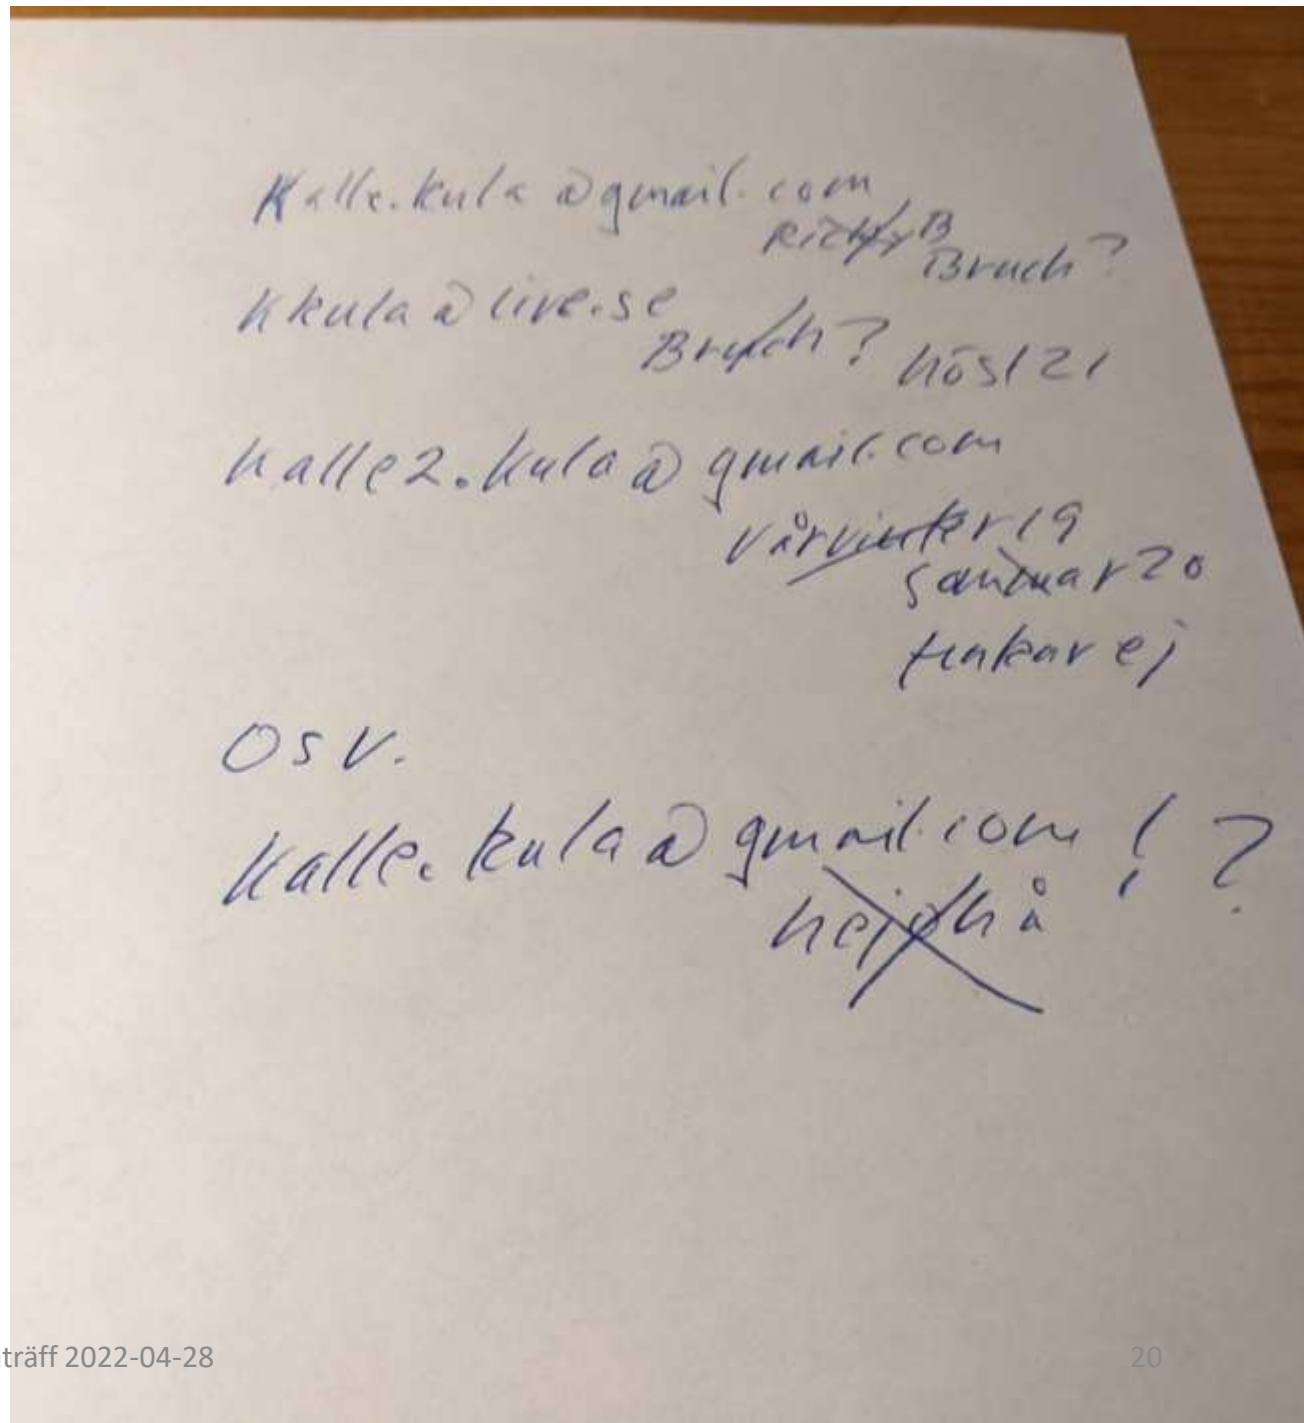 Kalle.kula@gmail.com
RickyB
Bruch?
Kkula@live.se
Bruch? höst21
Kalle2.kula@gmail.com
vårvinter19
sommar20
funkar ej
OSV.
Kalle.kula@gmail.com!?
hejohå
träff 2022-04-28
20